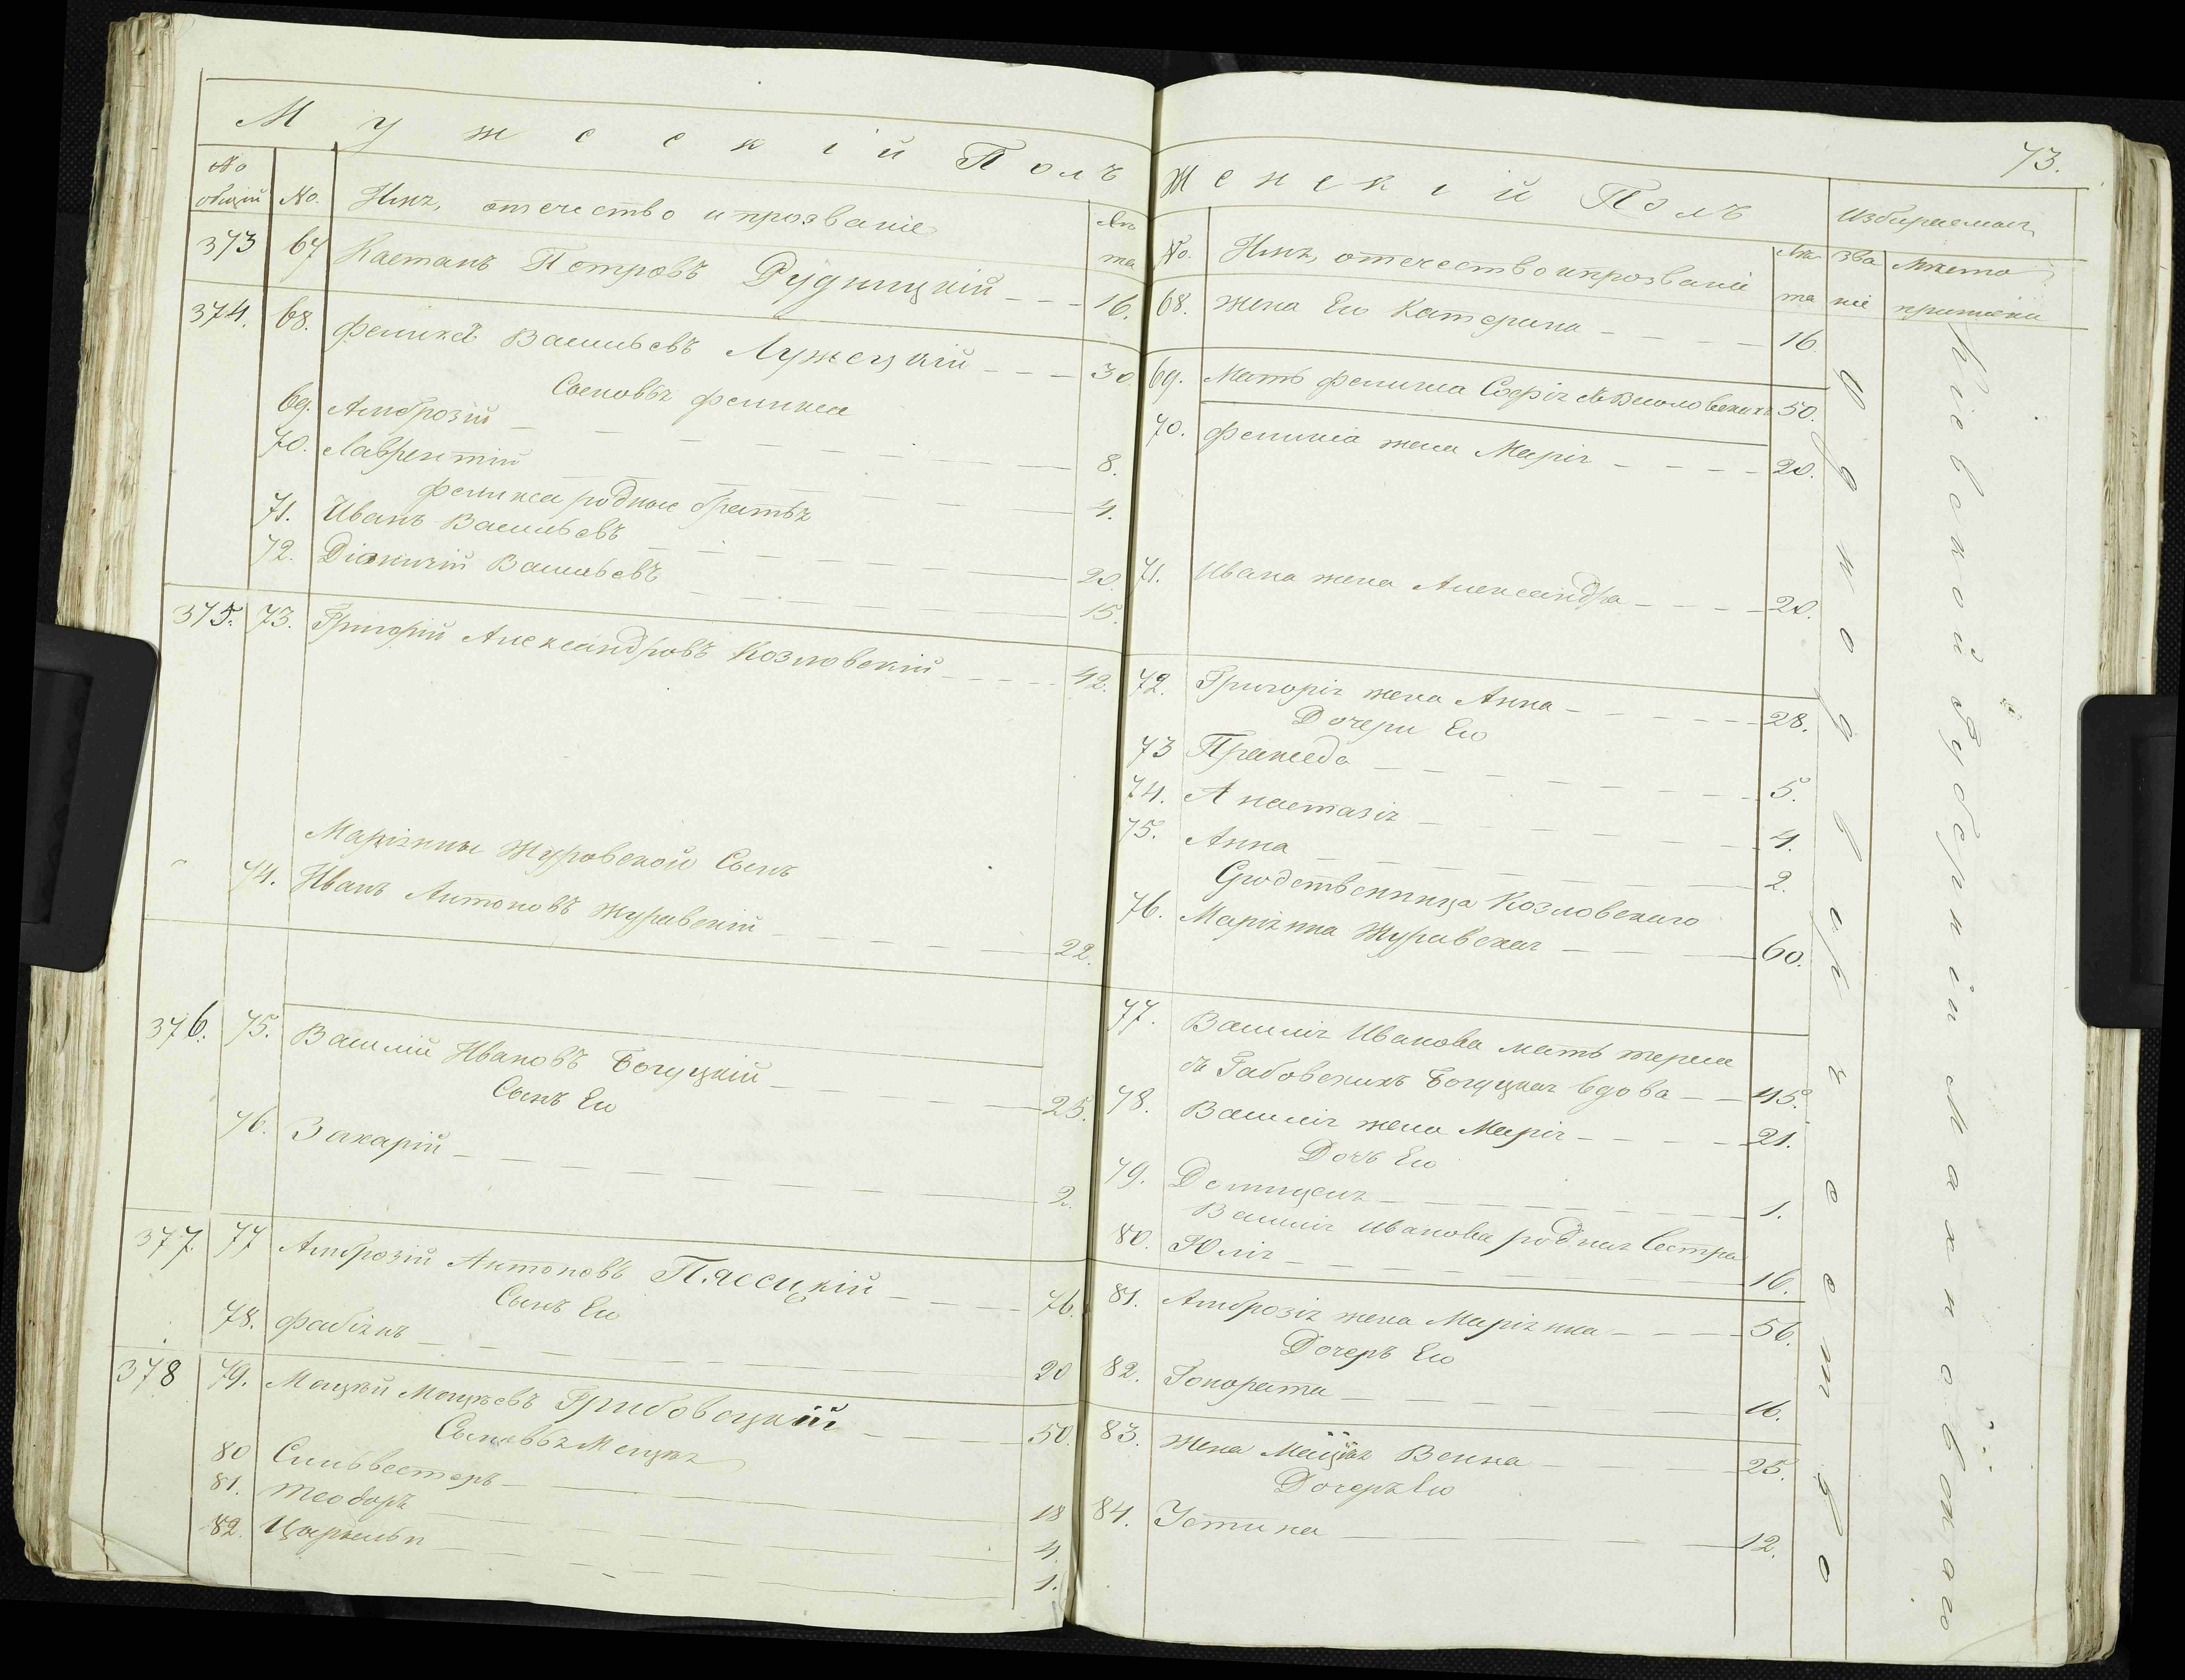 Мужескій Полъ
№ общій
№
Имя, отчество и прозваніе
Лѣта
373 67 Каетанъ Петровъ Рудницкій 16.
374. 68. Феликсъ Васильевъ Лужецкій 30
Сыновья Феликса
69. Амброзій 8.
70. Лаврентій 4.
Феликса родные братья
71. Иванъ Васильевъ 20
72. Діонизій Васильевъ 15.
375. 73. Григорій Александровъ Козловскій 42.
Маріянны Журовской Сынъ
74. Иванъ Антоновъ Журавскій 22.
376. 75. Василій Ивановъ Богуцкій 25.
Сынъ Его
76. Захарій 2.
377. 77 Амброзій Антоновъ Пясецкій 76.
Сынъ Его
78. Фабіянъ 20
378 79. Мацѣй Мацѣевъ Грибовецкій 50.
Сыновья Мацѣя
80 Сильвестеръ 18
81. Теодоръ 4.
82. 1.
73.
Женскій Полъ
Избираемыя
№.
Имя, отчество и прозваніе
Лѣта
Званіе
Мѣсто
68. Жена Его Катерина 16
69. Мать Феликса Софія 50.
70. Феликса жена Марія 20.
71. Ивана жена Александра 20.
72. Григорія жена Анна 28.
Дочери Его
73 Пракседа 5.
74. Анастазія 4.
75. Анна 2.
Сродственница Козловскаго
76. Маріянна Журавская 60.
77. Василія Иванова мать Тереса
съ Габовскихъ Богуцкая вдова 45.
78. Василія жена Марія 21.
Дочь Его
79. 1.
Василія Иванова родная Сестра
80. Юлія 16.
81. Амброзія жена Маріянна 56.
Дочеръ Его
82. Гонората 16.
83. Жена Мацѣя 25.
Дочеръ Его
84. Устина 12.
Однодворчество
Кіевской Губерніи Махновскаго